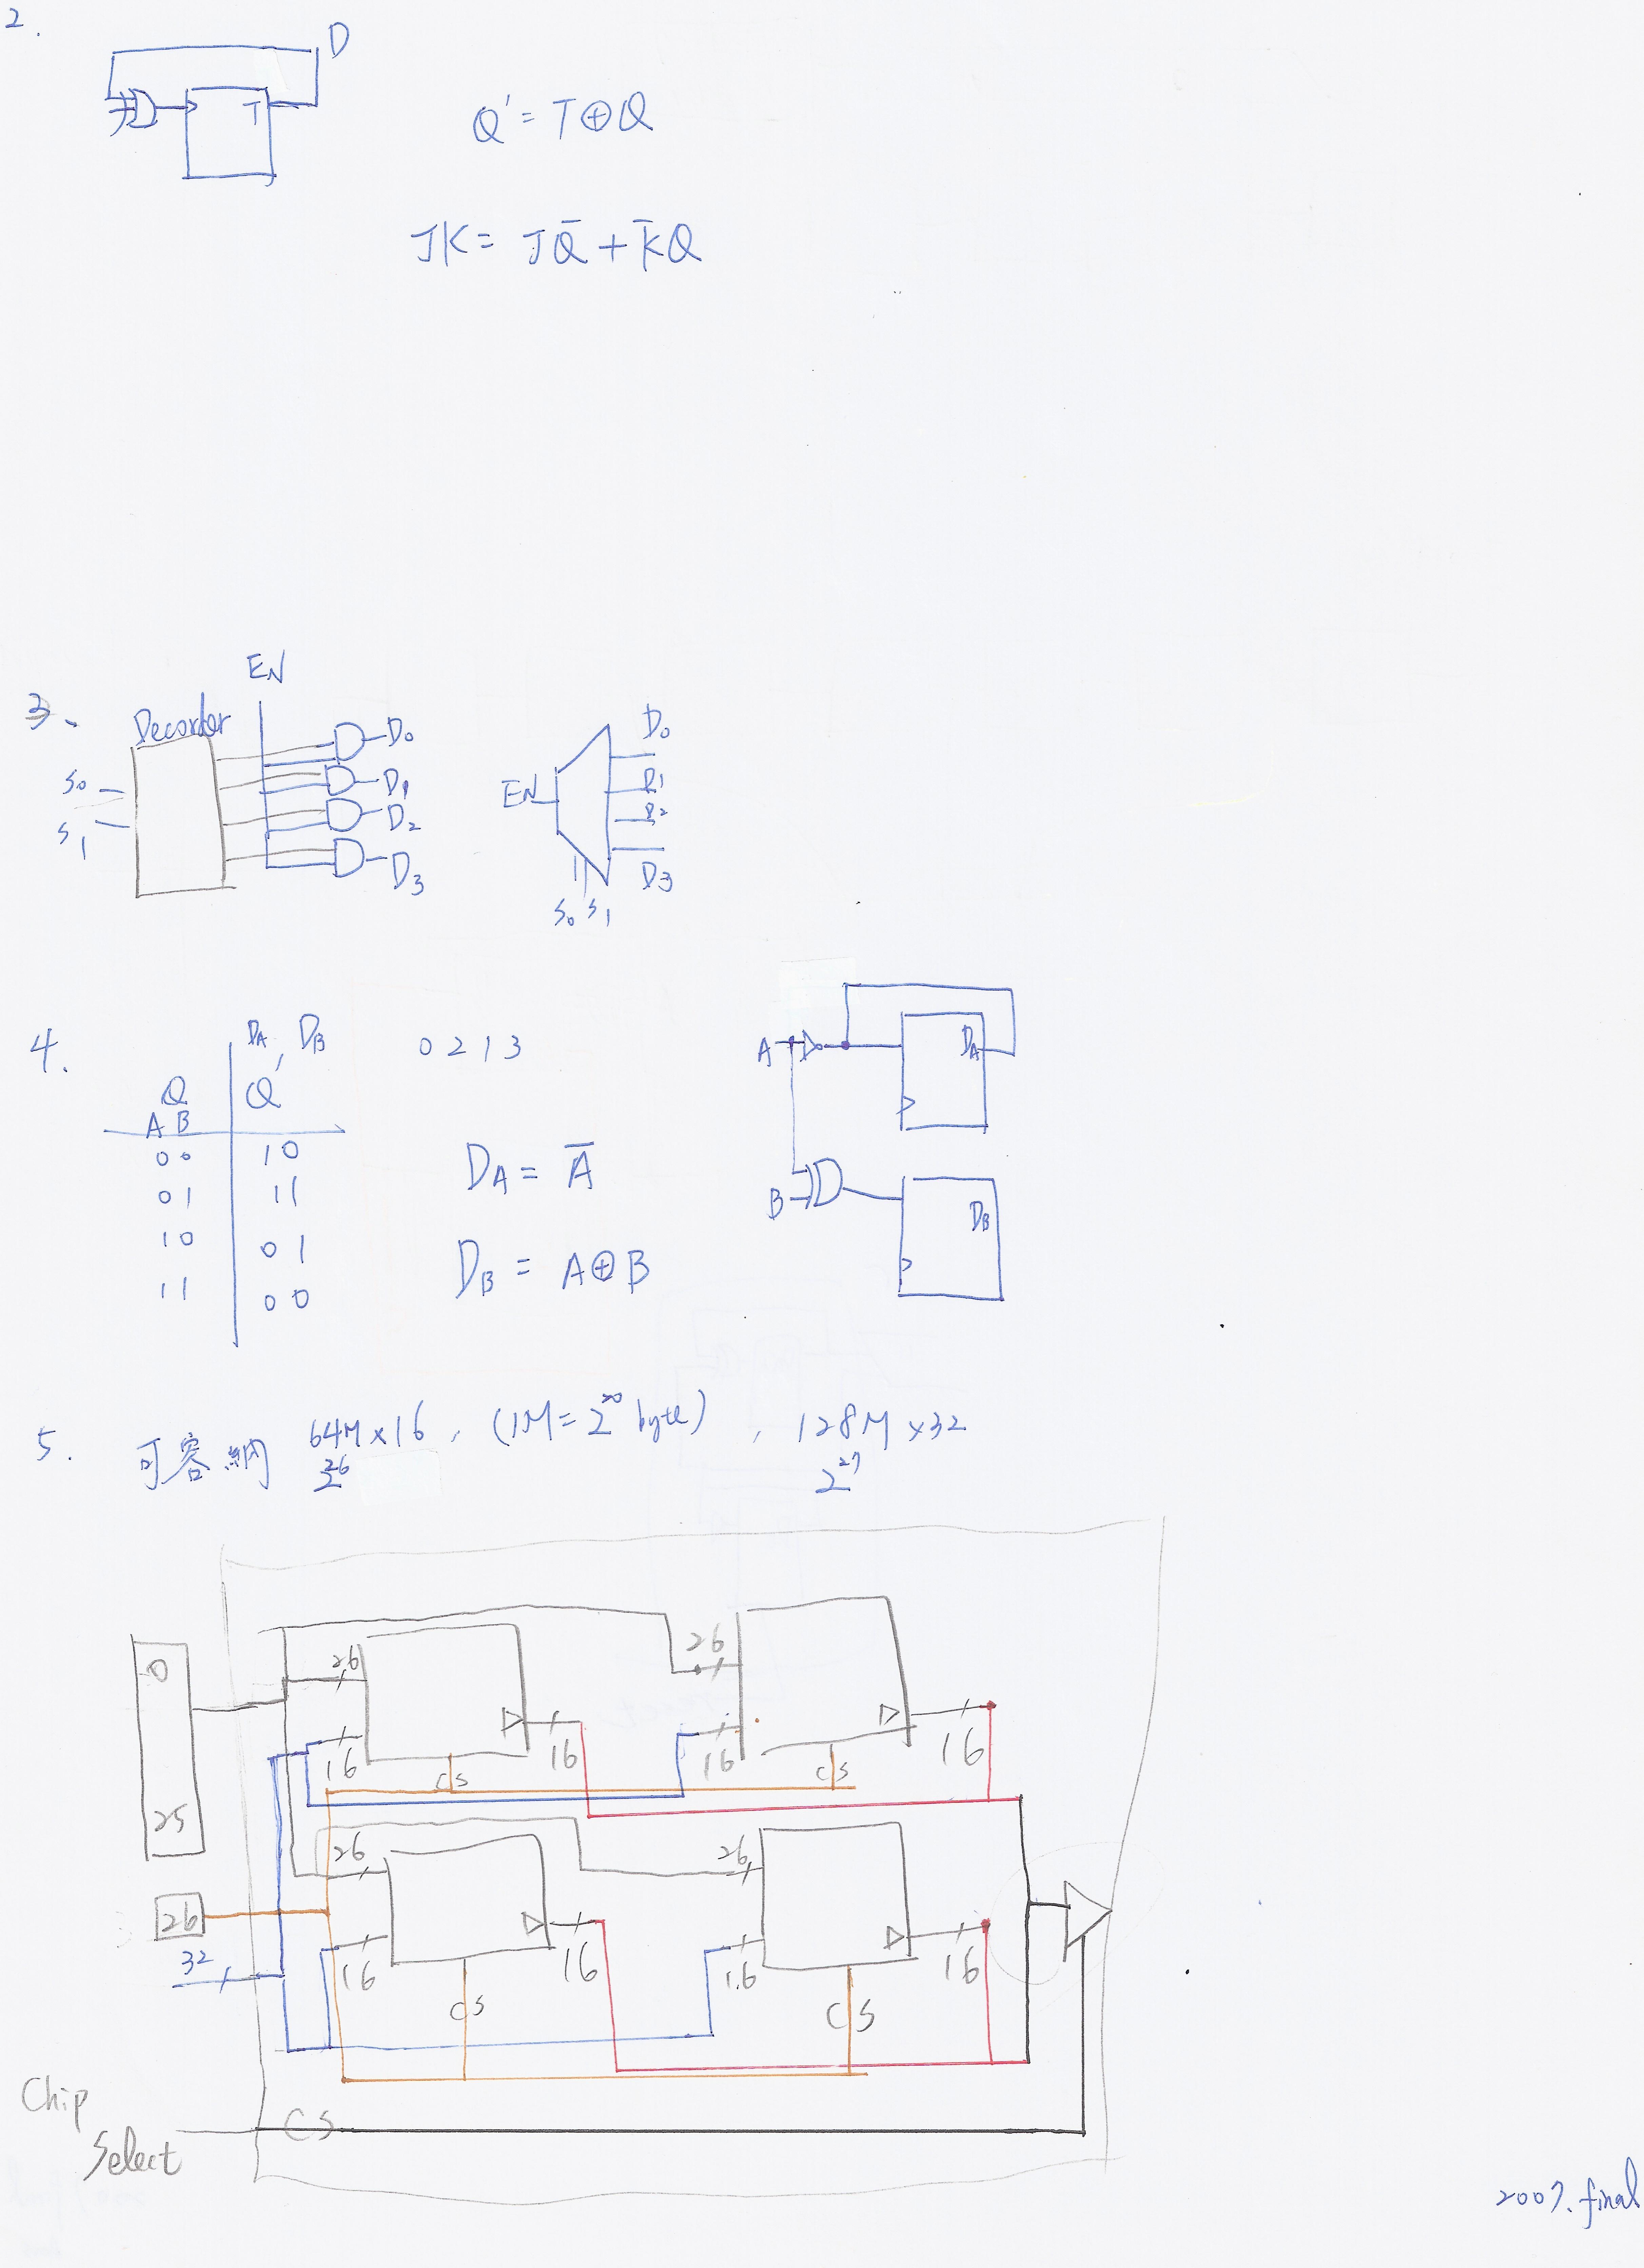 2.
D
T
Q' = T⊕Q
JK = JQ̄ + K̄Q
3、
EN
Decorder
S₀
S₁
D₀
D₁
D₂
D₃
EN
D₀
D₁
D₂
D₃
S₀ S₁
4.
D_A, D_B
Q Q'
A B
00 10
01 11
10 01
11 00
0 2 1 3
D_A = Ā
D_B = A⊕B
A
D_A
B
D_B
5. 可容納 64M×16, (1M=2²⁰ byte), 128M×32
2²⁶ 2²⁷
0
25
26
32
26
16
16
CS
26
16
16
CS
26
16
16
CS
26
16
16
CS
Chip
Select
CS
2007.final